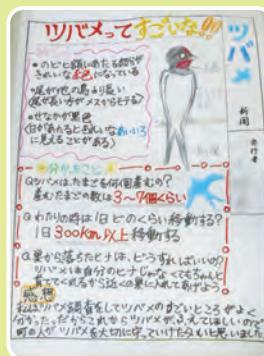 ツバメってすごいな!!
ツバメ
新聞
発行者
・のどと額にあたる部分が
きれいな赤色になっている
・尾が他の鳥より長い
(尾が長い方がメスからモテる)
・せなかが黒色
(日があたるときれいなあいいろ
に見えることがある)
分かったこと
Qツバメは、たまごを何個産むの?
産むたまごの数は3〜7個くらい
Qわたりの時は1日どのくらい移動する?
1日300km以上移動する
Q巣から落ちたヒナは、どうすればいいの?
ツバメは自分のヒナじゃなくてもちゃんと
育ててくれるから近くの巣に入れてあげよう
感想
私はツバメ調査をしてツバメのすごいところがよく
分かった。だからこれからツバメが
町の人がツバメを大切に守っていけたらいいと思いました